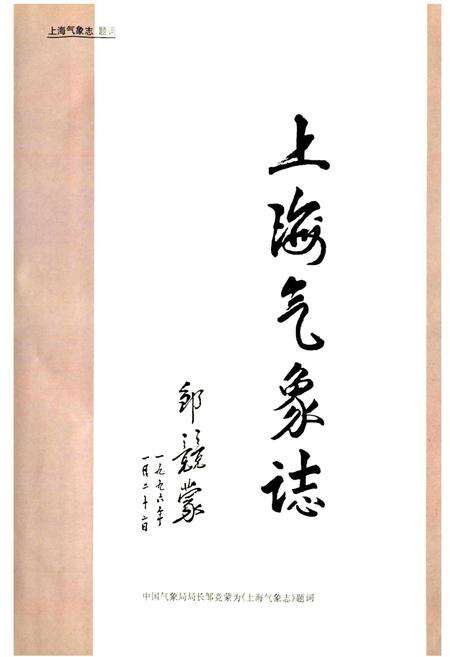 上海气象志 题词
上海气象誌
邹竞蒙
一九九六年
一月二十二日
中国气象局局长邹竞蒙为《上海气象志》题词